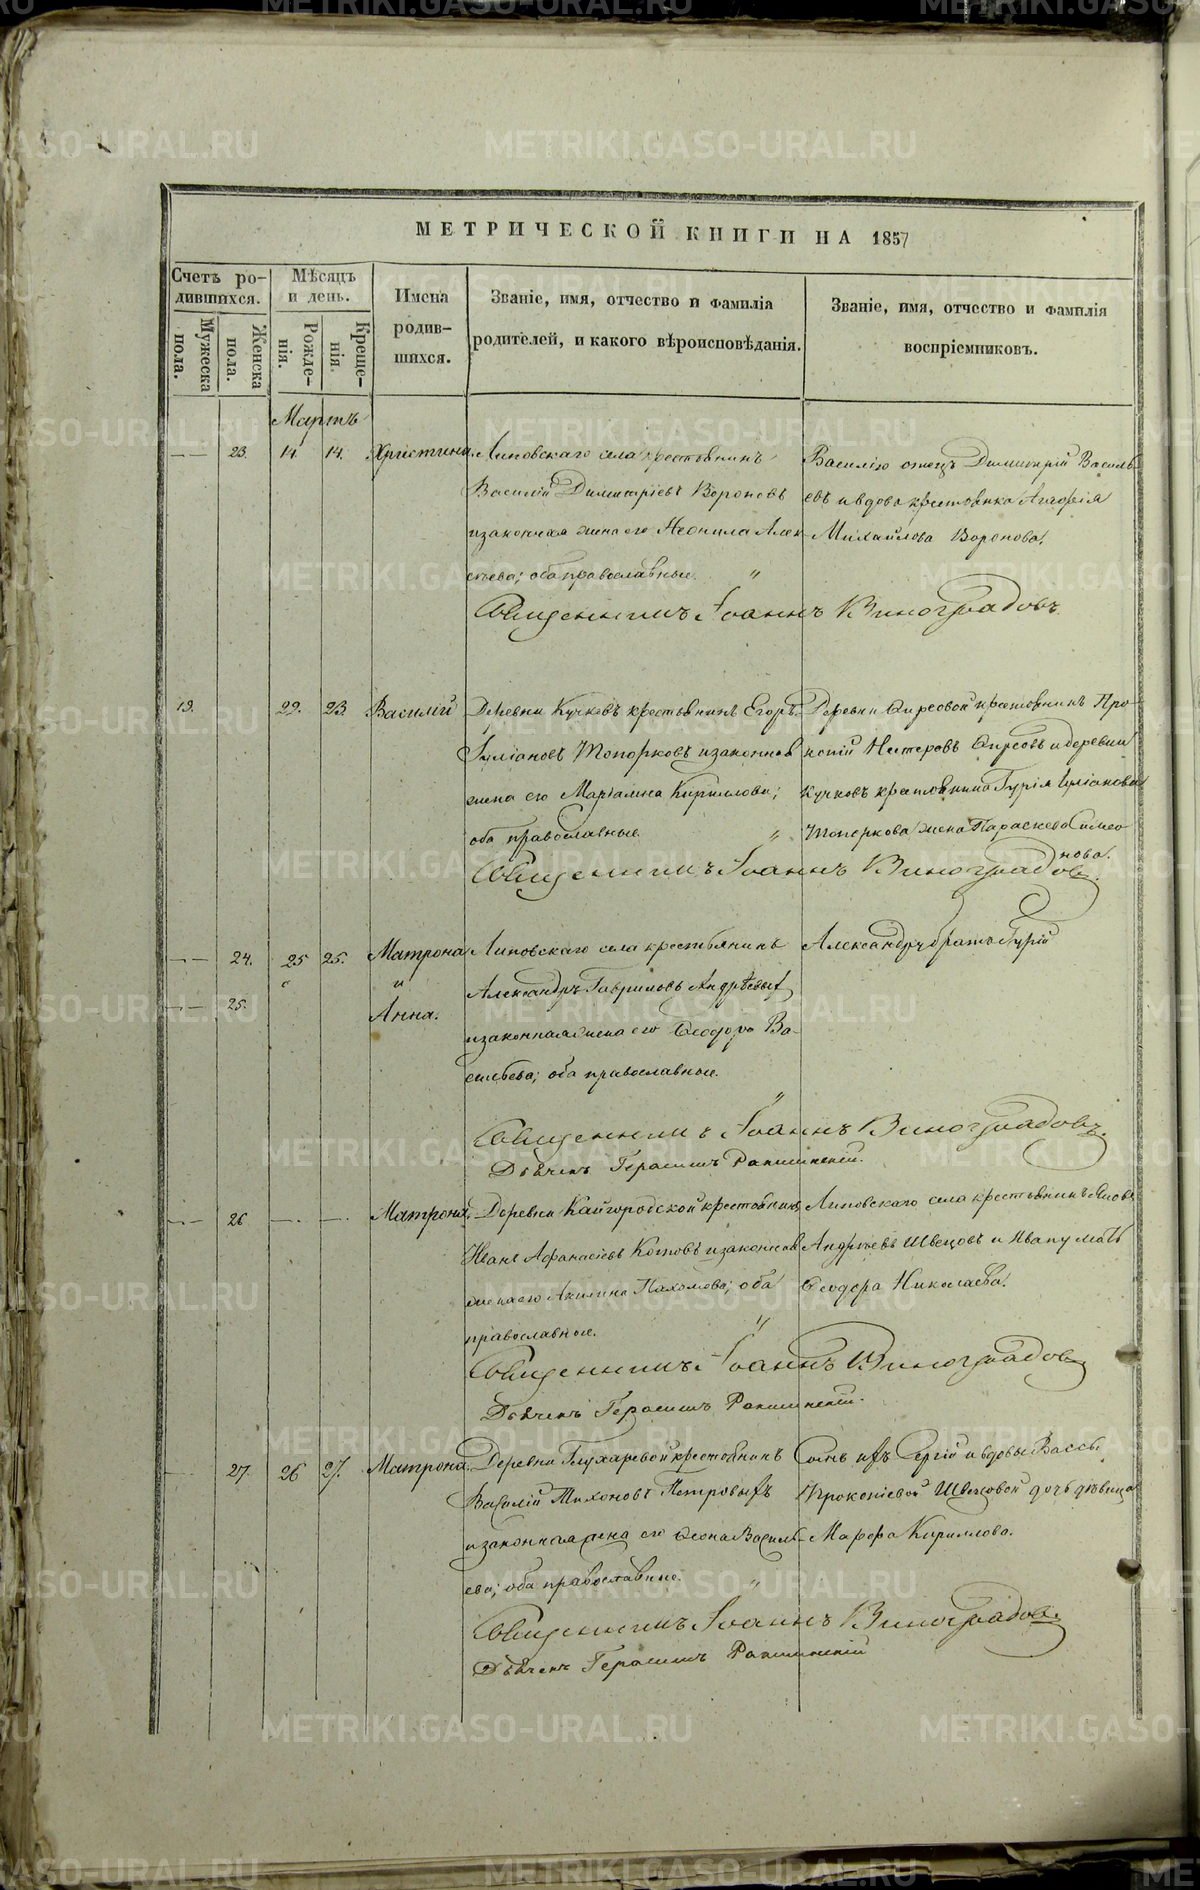 МЕТРИЧЕСКОЙ КНИГИ НА 1857
Счетъ ро-
дившихся.
Мужеска
пола.
Женска
пола.
Мѣсяцъ
и день.
Рожде-
нія.
Креще-
нія.
Имена
родив-
шихся.
Званіе, имя, отчество и фамилія
родителей, и какого вѣроисповѣданія.
Званіе, имя, отчество и фамилія
воспріемниковъ.
Мартъ
23. 14. 14. Христина
Липовскаго села крестьянинъ
Василій Димитріевъ Вороповъ
и законная жена его Неонила Алек-
сѣева; оба православные. "
Василію отецъ Димитрій Василь-
евъ и вдова крестьянка
Михайлова Воропова.
Священникъ Іоаннъ Виноградовъ.
19. 22. 23. Василій
Деревни Кучковъ крестьянинъ Егоръ
Іуліановъ Топорковъ и законная
жена его Маріамна Кириллова;
оба православные. "
Деревни крестьянинъ Про-
копій Нестеровъ и деревни
Кучковъ крестьянина Гурія Іуліанова
Топоркова жена Параскева Симео-
нова.
Священникъ Іоаннъ Виноградовъ.
24. 25 25. Матрона
и
25. Анна.
Липовскаго села крестьянинъ
Александръ Гавриловъ Андреевыхъ
и законная жена его Ѳеодора Ва-
сильева; оба православные.
"
Александру братъ Гурій
Священникъ Іоаннъ Виноградовъ.
Дьячекъ Герасимъ
26 Матрона.
Деревни Кайгородской крестьянинъ
Иванъ Афанасіевъ Котовъ и законная
жена его Акилина Пахомова; оба
православные. "
Липовскаго села крестьянинъ Яковъ
Андреевъ Швецовъ и Ивану мать
Ѳеодора Николаева.
Священникъ Іоаннъ Виноградовъ
Дьячекъ Герасимъ
27. 26 27. Матрона.
Деревни Глухаревой крестьянинъ
Василій Тихоновъ Петровыхъ
и законная жена его Василь-
ева; оба православные. "
Сынъ ихъ Сергій и вдовы Вассы
Прокопіевой Швецовой дочь дѣвица
Марфа Кириллова.
Священникъ Іоаннъ Виноградовъ.
Дьячекъ Герасимъ
METRIKI.GASO-URAL.RU